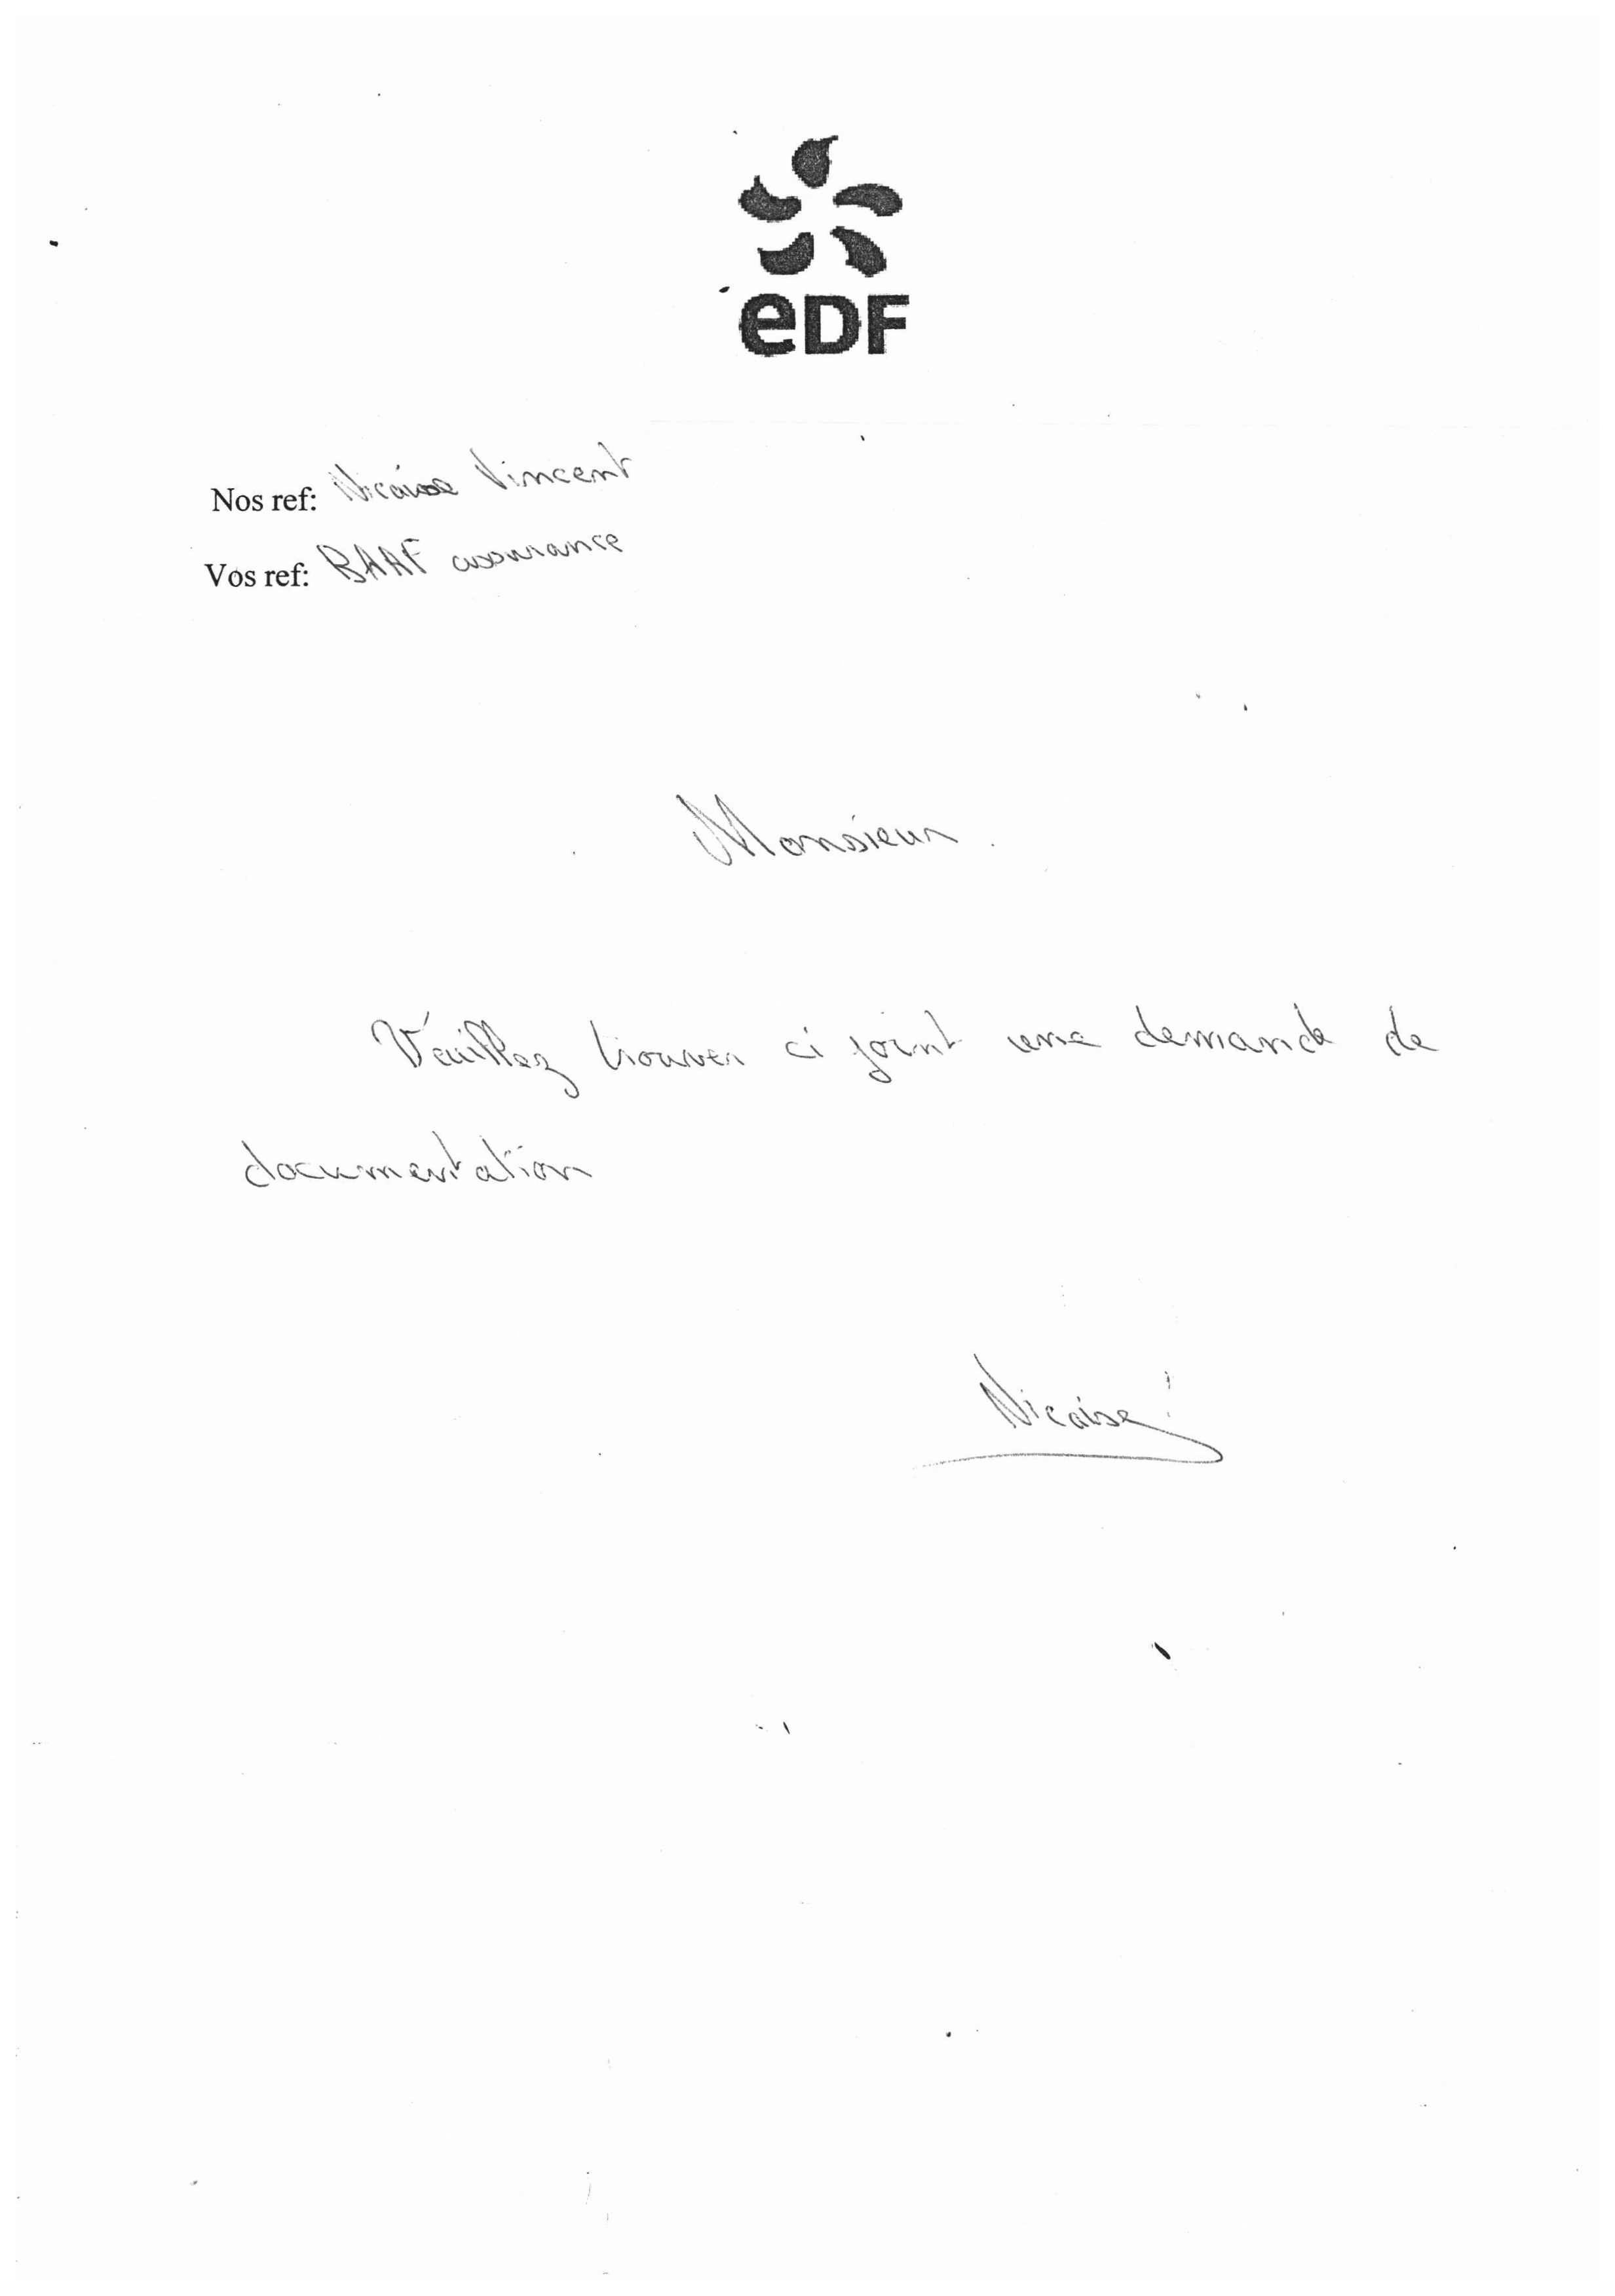 eDF
Nos ref: Nicaise Vincent
Vos ref: BAAF assurance
Monsieur.
Veuillez trouver ci joint une demande de
documentation
Nicaise